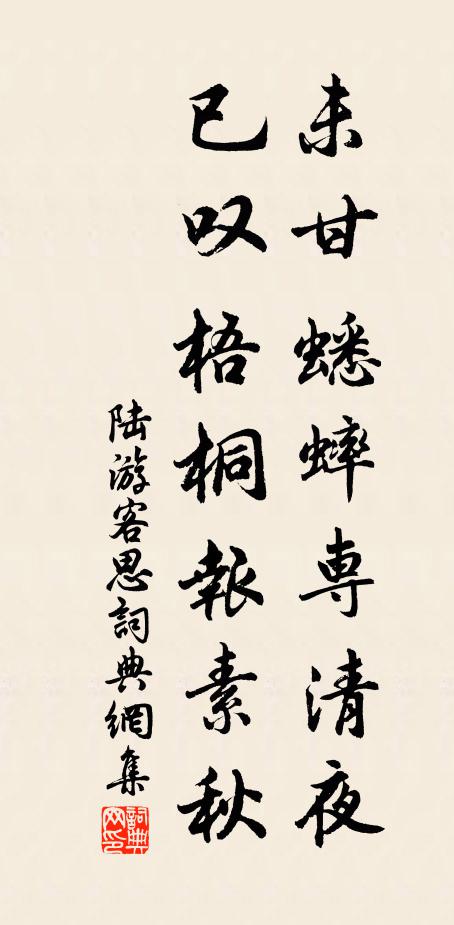 未甘蟋蟀専清夜
已叹梧桐報素秋
陆游客思詞典網集
詞典网印